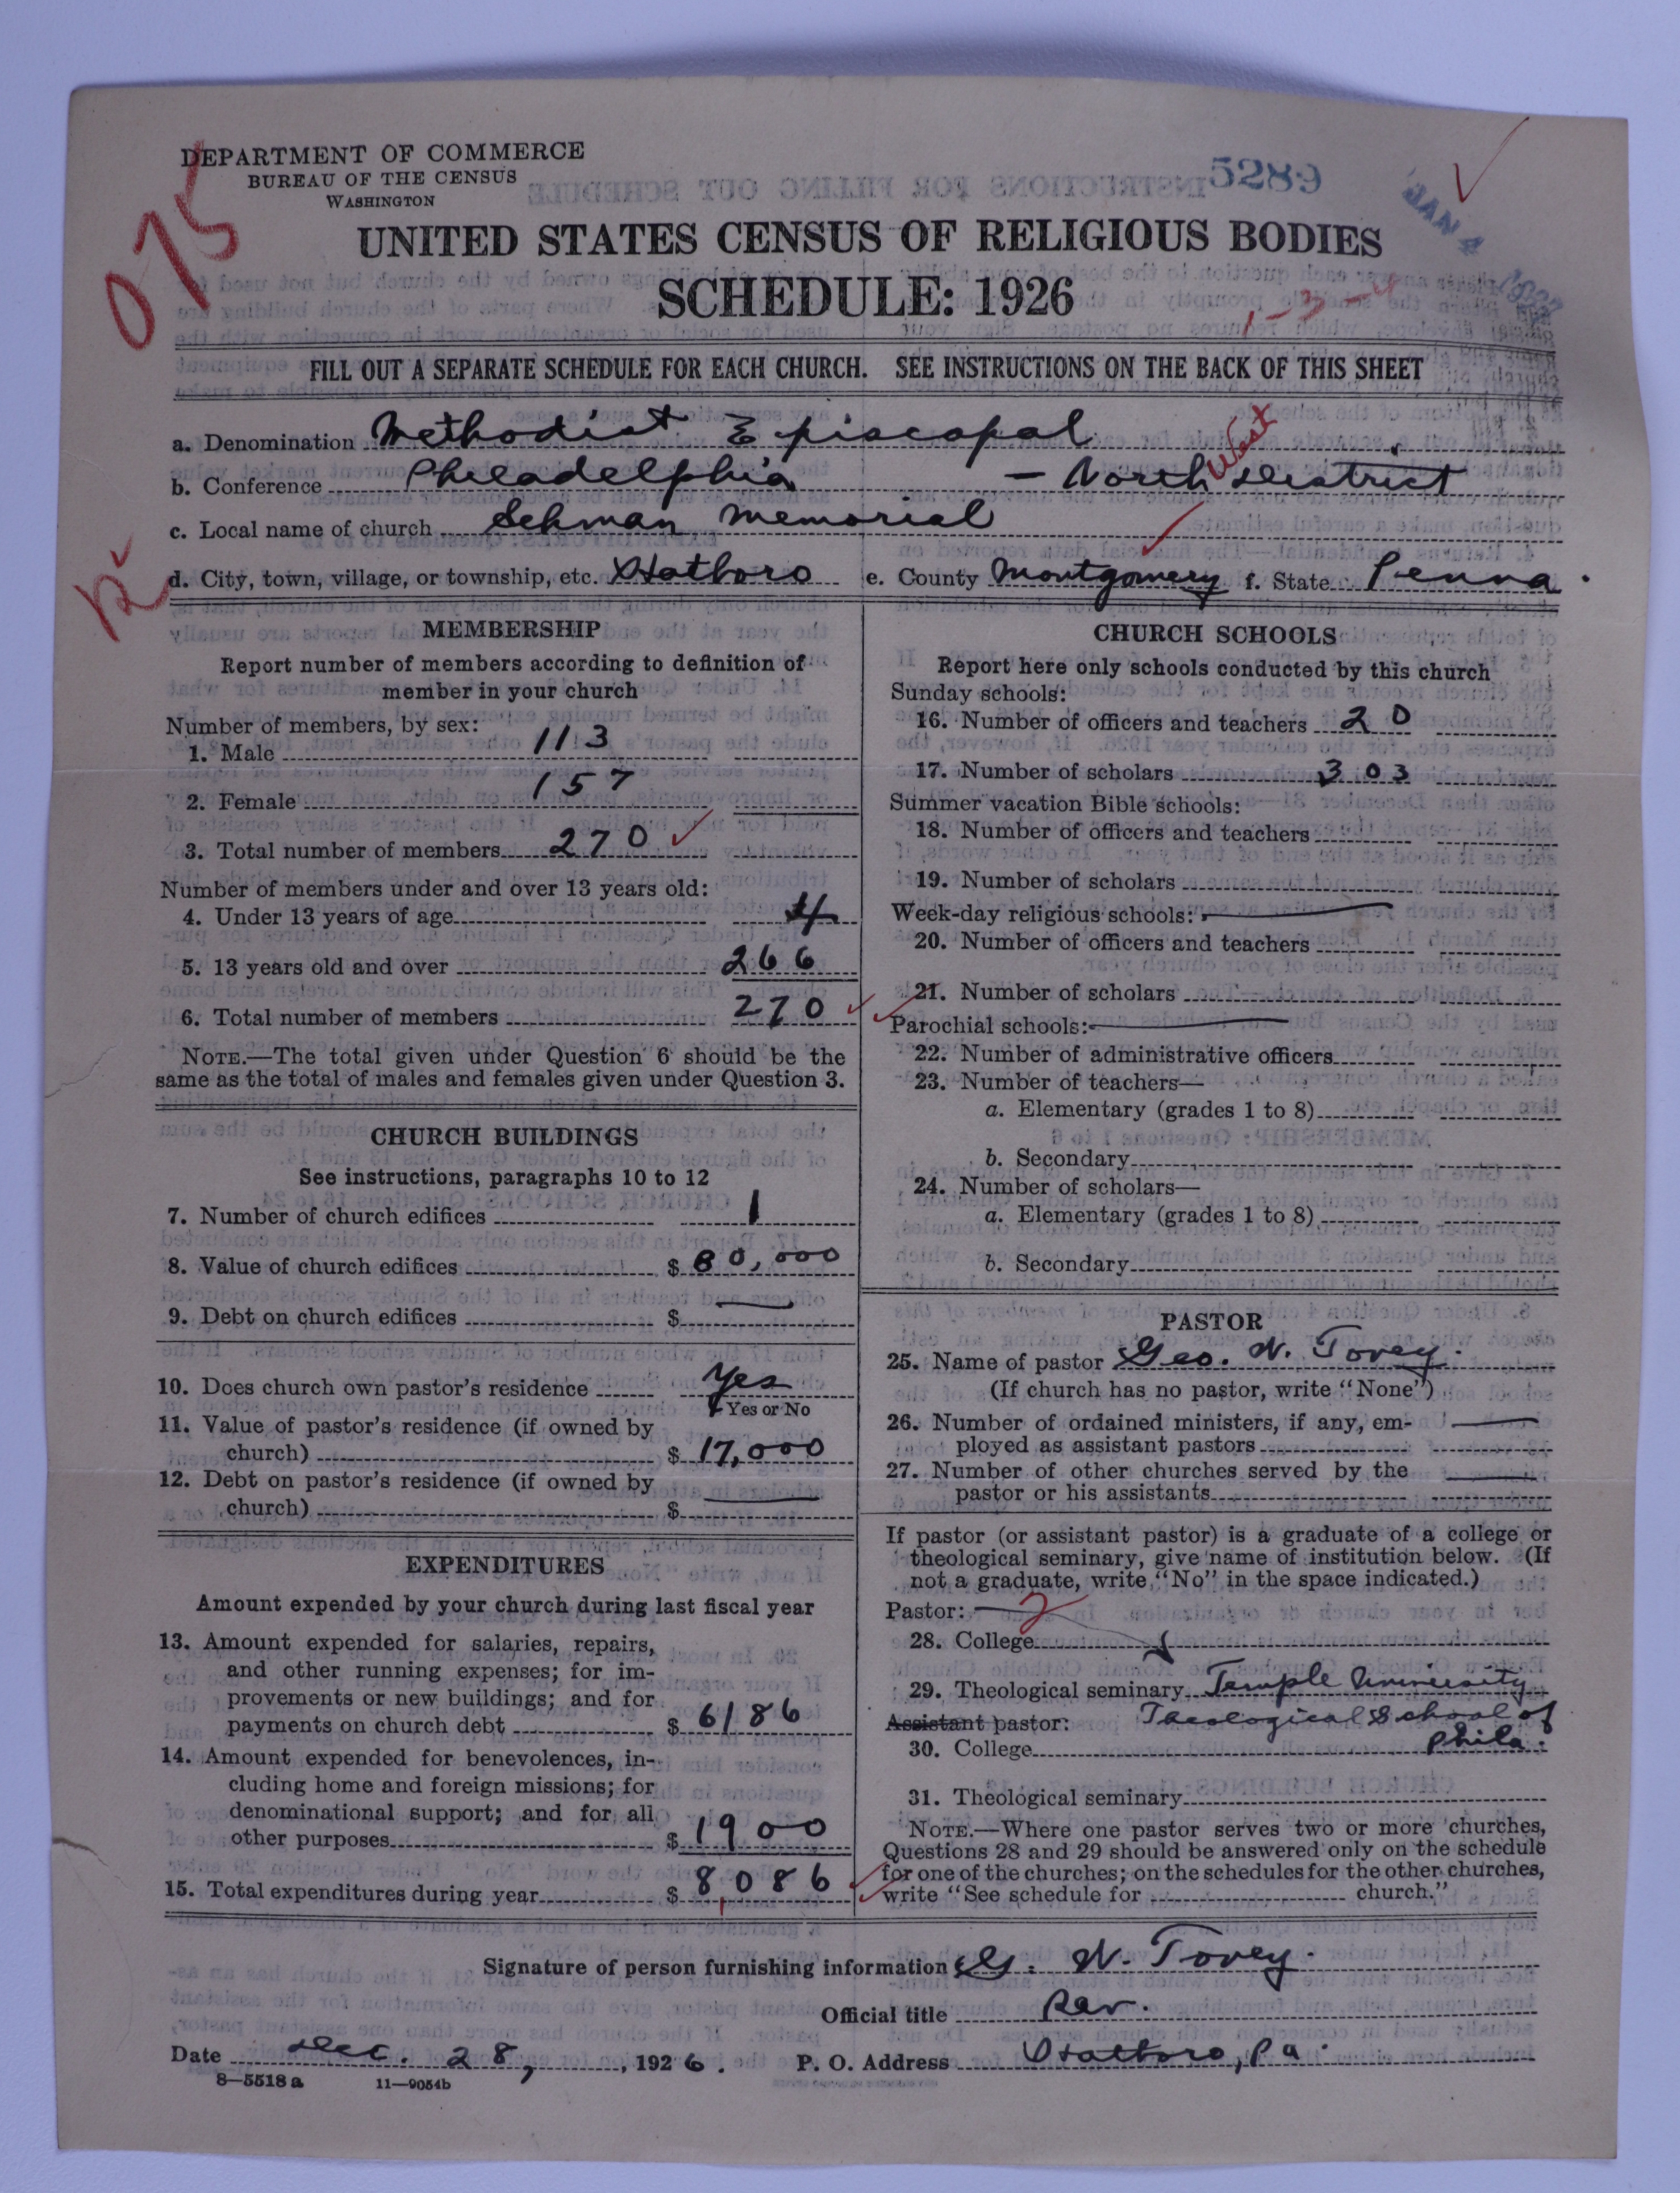 DEPARTMENT OF COMMERCE
BUREAU OF THE CENSUS
WASHINGTON
5289
JAN 4 1927
075
UNITED STATES CENSUS OF RELIGIOUS BODIES
SCHEDULE: 1926
1-3-4
FILL OUT A SEPARATE SCHEDULE FOR EACH CHURCH. SEE INSTRUCTIONS ON THE BACK OF THIS SHEET
a. Denomination Methodist Episcopal
b. Conference Philadelphia - North West District
c. Local name of church Lehman Memorial
d. City, town, village, or township, etc. Hatboro e. County Montgomery f. State Penna.
MEMBERSHIP
Report number of members according to definition of
member in your church
Number of members, by sex:
1. Male 113
2. Female 157
3. Total number of members 270
Number of members under and over 13 years old:
4. Under 13 years of age 4
5. 13 years old and over 266
6. Total number of members 270
NOTE.—The total given under Question 6 should be the
same as the total of males and females given under Question 3.
CHURCH BUILDINGS
See instructions, paragraphs 10 to 12
7. Number of church edifices 1
8. Value of church edifices $ 80,000
9. Debt on church edifices $ —
10. Does church own pastor's residence Yes
Yes or No
11. Value of pastor's residence (if owned by
church) $ 17,000
12. Debt on pastor's residence (if owned by
church) $ —
EXPENDITURES
Amount expended by your church during last fiscal year
13. Amount expended for salaries, repairs,
and other running expenses; for im-
provements or new buildings; and for
payments on church debt $ 6186
14. Amount expended for benevolences, in-
cluding home and foreign missions; for
denominational support; and for all
other purposes $ 1900
15. Total expenditures during year $ 8,086
CHURCH SCHOOLS
Report here only schools conducted by this church
Sunday schools:
16. Number of officers and teachers 20
17. Number of scholars 303
Summer vacation Bible schools:
18. Number of officers and teachers
19. Number of scholars
Week-day religious schools: —
20. Number of officers and teachers
21. Number of scholars
Parochial schools: —
22. Number of administrative officers
23. Number of teachers—
a. Elementary (grades 1 to 8)
b. Secondary
24. Number of scholars—
a. Elementary (grades 1 to 8)
b. Secondary
PASTOR
25. Name of pastor Geo. W. Tovey.
(If church has no pastor, write "None")
26. Number of ordained ministers, if any, em-
ployed as assistant pastors —
27. Number of other churches served by the
pastor or his assistants —
If pastor (or assistant pastor) is a graduate of a college or
theological seminary, give name of institution below. (If
not a graduate, write "No" in the space indicated.)
Pastor: — 2
28. College
29. Theological seminary Temple University
Assistant pastor: Theological School of
30. College Phila.
31. Theological seminary
NOTE.—Where one pastor serves two or more churches,
Questions 28 and 29 should be answered only on the schedule
for one of the churches; on the schedules for the other churches,
write "See schedule for church."
Signature of person furnishing information G. W. Tovey.
Official title Rev.
Date Dec. 28, , 1926. P. O. Address Hatboro, Pa.
8—5518 a 11—9054b